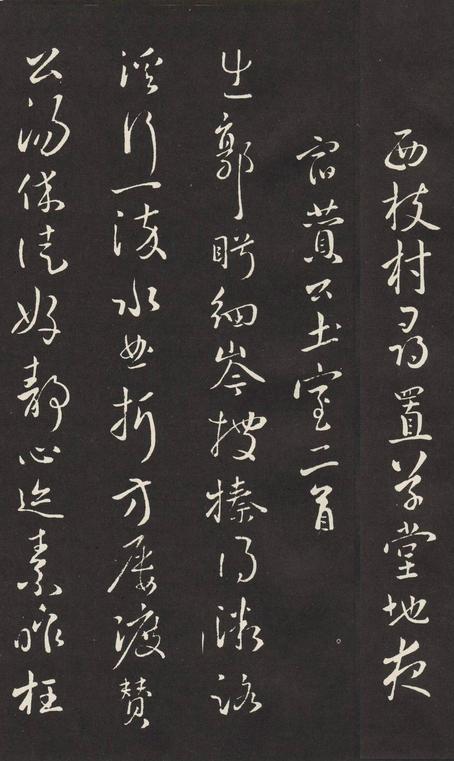 西枝村尋置草堂地夜
宿贊公土室二首
出郭眄細岑披榛得微路
溪行一流水曲折方屢渡贊
公湯休徒好靜心迹素昨枉